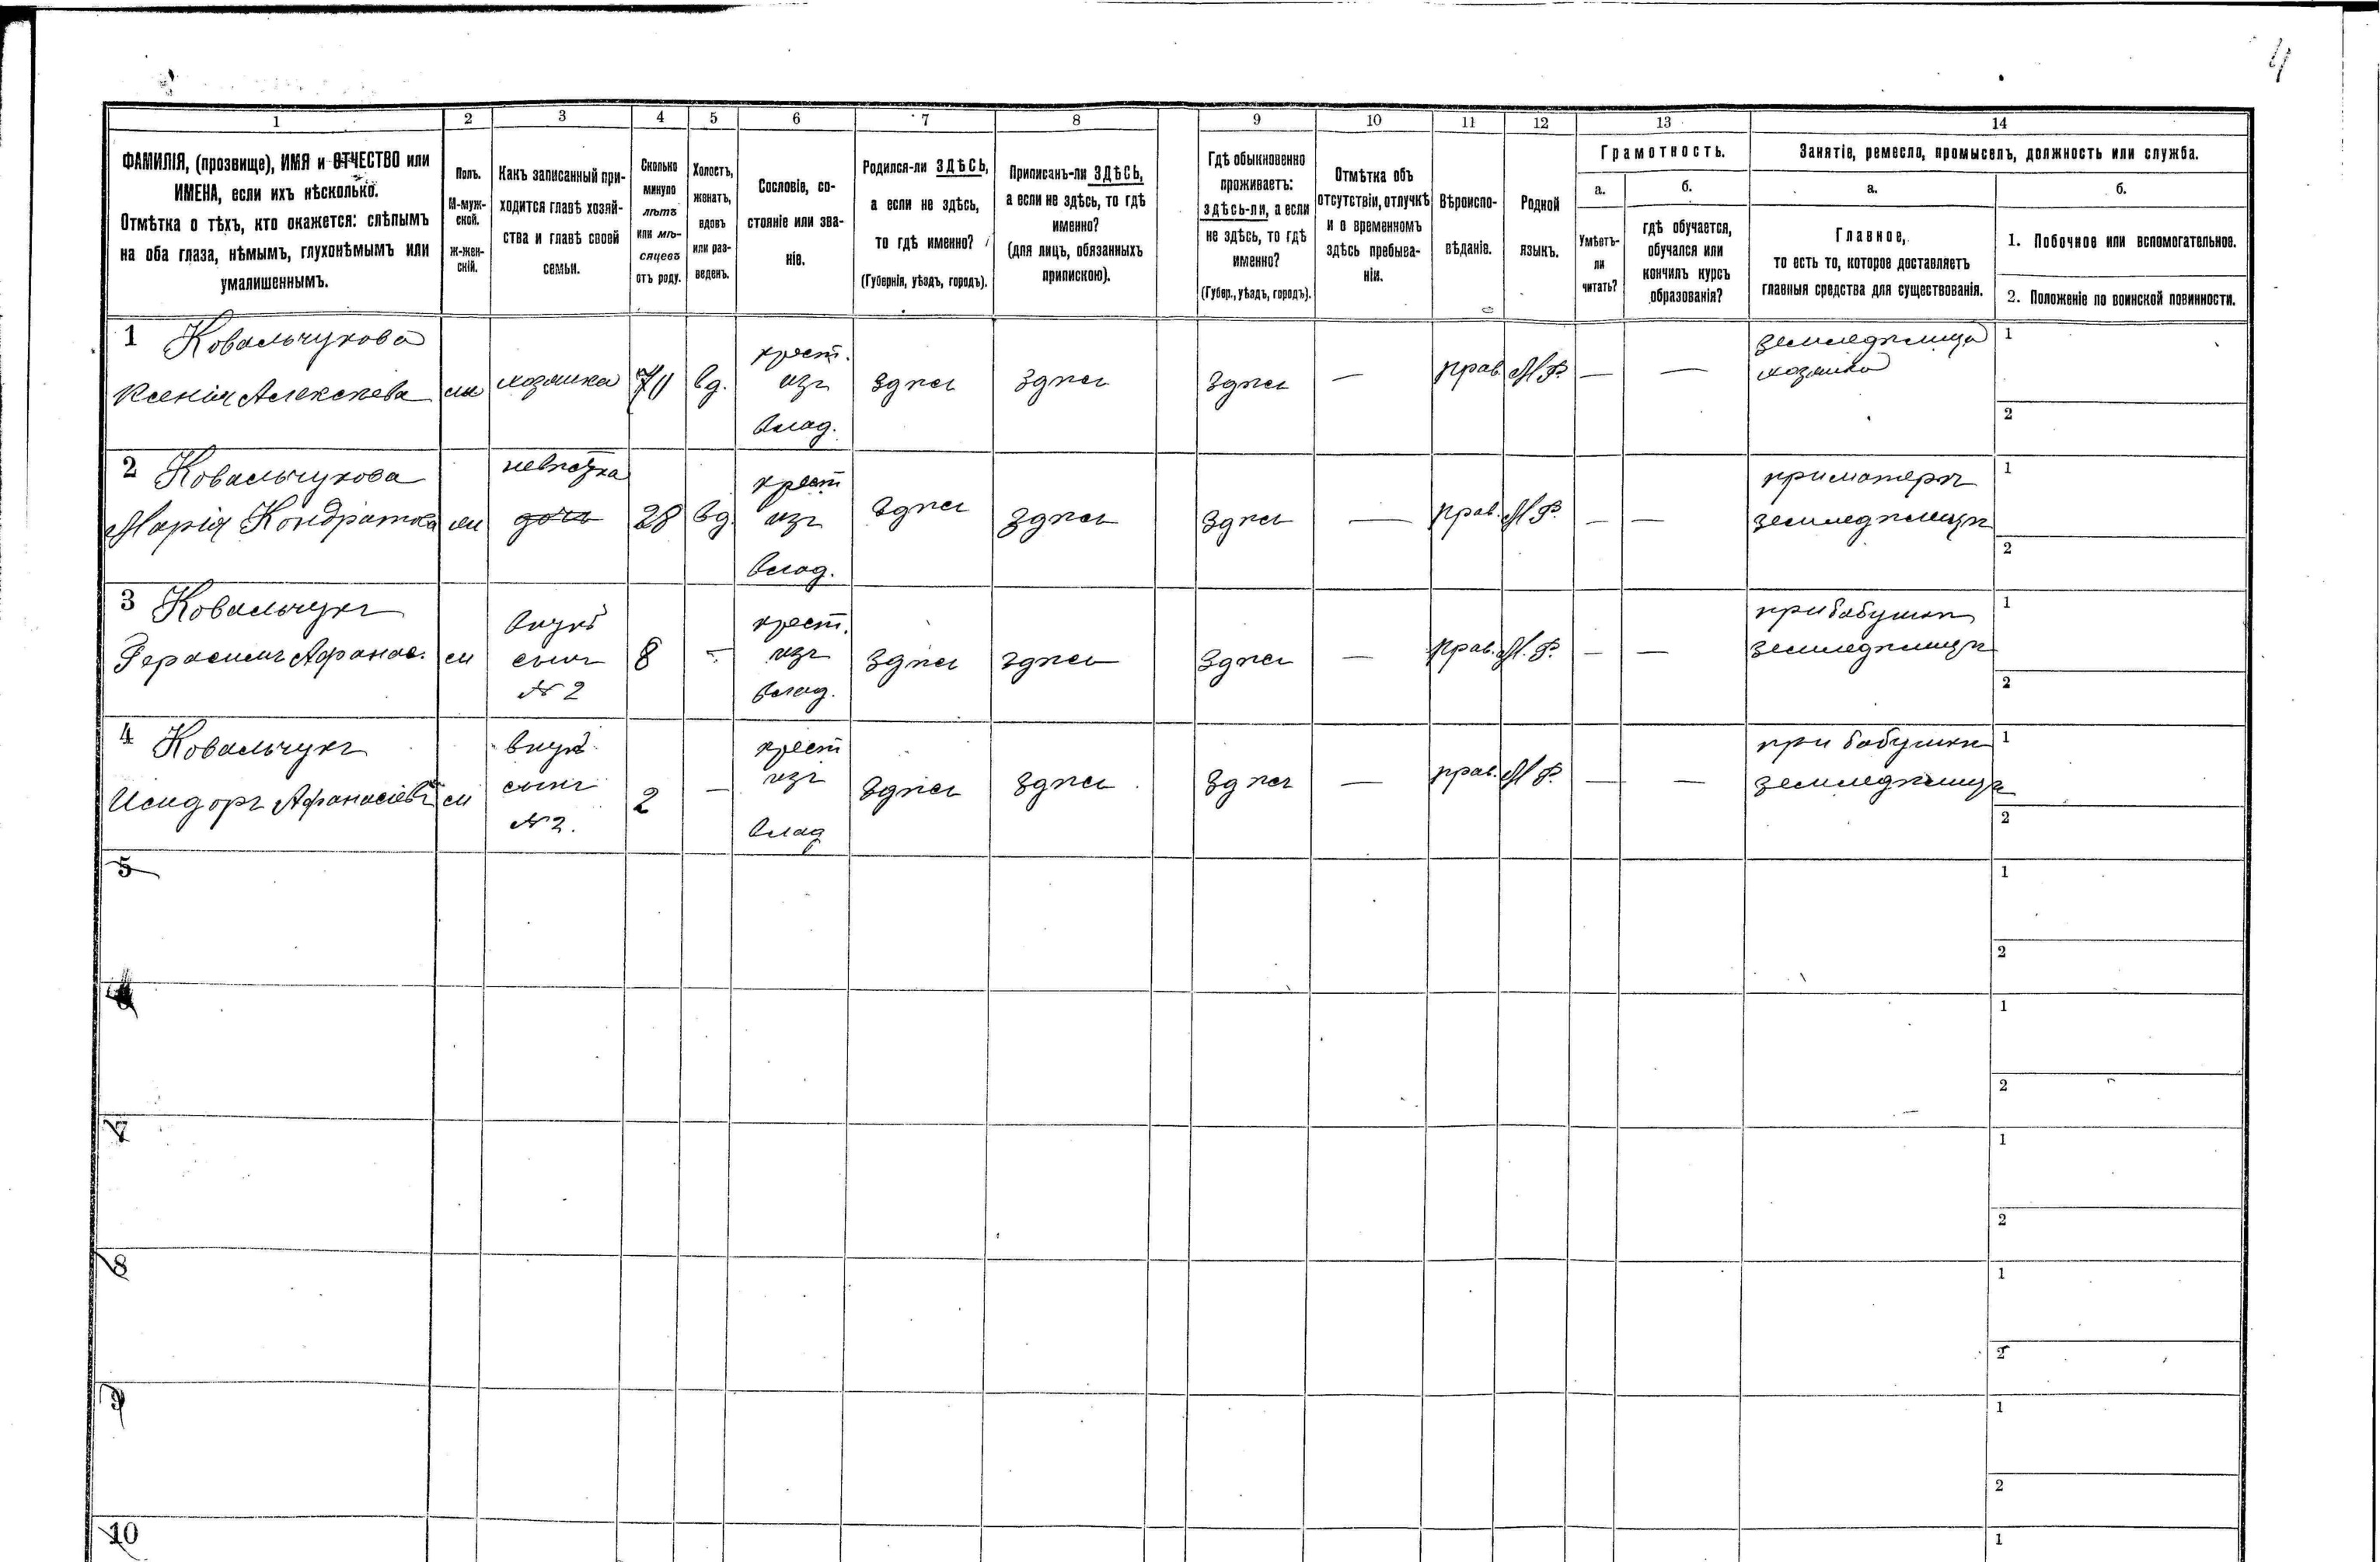 4
1 2 3 4 5 6 7 8 9 10 11 12 13 14
ФАМИЛІЯ, (прозвище), ИМЯ и ОТЧЕСТВО или
ИМЕНА, если ихъ нѣсколько.
Отмѣтка о тѣхъ, кто окажется: слѣпымъ
на оба глаза, нѣмымъ, глухонѣмымъ или
умалишеннымъ.
Полъ.
М-муж-
ской.
Ж-жен-
скій.
Какъ записанный при-
ходится главѣ хозяй-
ства и главѣ своей
семьи.
Сколько
минуло
лѣтъ
или мѣ-
сяцевъ
отъ роду.
Холостъ,
женатъ,
вдовъ
или раз-
веденъ.
Сословіе, со-
стояніе или зва-
ніе.
Родился-ли ЗДѢСЬ,
а если не здѣсь,
то гдѣ именно?
(Губернія, уѣздъ, городъ).
Приписанъ-ли ЗДѢСЬ,
а если не здѣсь, то гдѣ
именно?
(для лицъ, обязанныхъ
припискою).
Гдѣ обыкновенно
проживаетъ:
здѣсь-ли, а если
не здѣсь, то гдѣ
именно?
(Губер., уѣздъ, городъ).
Отмѣтка объ
отсутствіи, отлучкѣ
и о временномъ
здѣсь пребыва-
ніи.
Вѣроиспо-
вѣданіе.
Родной
языкъ.
Грамотность.
а.
Умѣетъ-
ли
читать?
б.
гдѣ обучается,
обучался или
кончилъ курсъ
образованія?
Занятіе, ремесло, промыселъ, должность или служба.
а.
Главное,
то есть то, которое доставляетъ
главныя средства для существованія.
б.
1. Побочное или вспомогательное.
2. Положеніе по воинской повинности.
1 Ковальчукова
Ксенія Алексѣева
хозяйка
70
вд.
крест.
изъ
влад.
здѣсь
здѣсь
здѣсь
—
прав.
М. Р.
—
—
земледѣлица
хозяйка
1
2
2 Ковальчукова
Марія Кондратова
невѣстка
дочь
28
вд.
крест
изъ
влад.
здѣсь
здѣсь
здѣсь
—
прав.
М. Р.
—
—
при матери
земледѣлицѣ
1
2
3 Ковальчукъ
Герасимъ Афанас.
м
внукъ
сынъ
№ 2
8
—
крест.
изъ
влад.
здѣсь
здѣсь
здѣсь
—
прав.
М. Р.
—
—
при бабушкѣ
земледѣлицѣ
1
2
4 Ковальчукъ
Исидоръ Афанасіевъ
м
внукъ
сынъ
№ 2.
2
—
крест
изъ
влад
здѣсь
здѣсь
здѣсь
—
прав.
М. Р.
—
—
при бабушкѣ
земледѣлицѣ
1
2
5
1
2
6
1
2
7
1
2
8
1
2
9
1
2
10
1